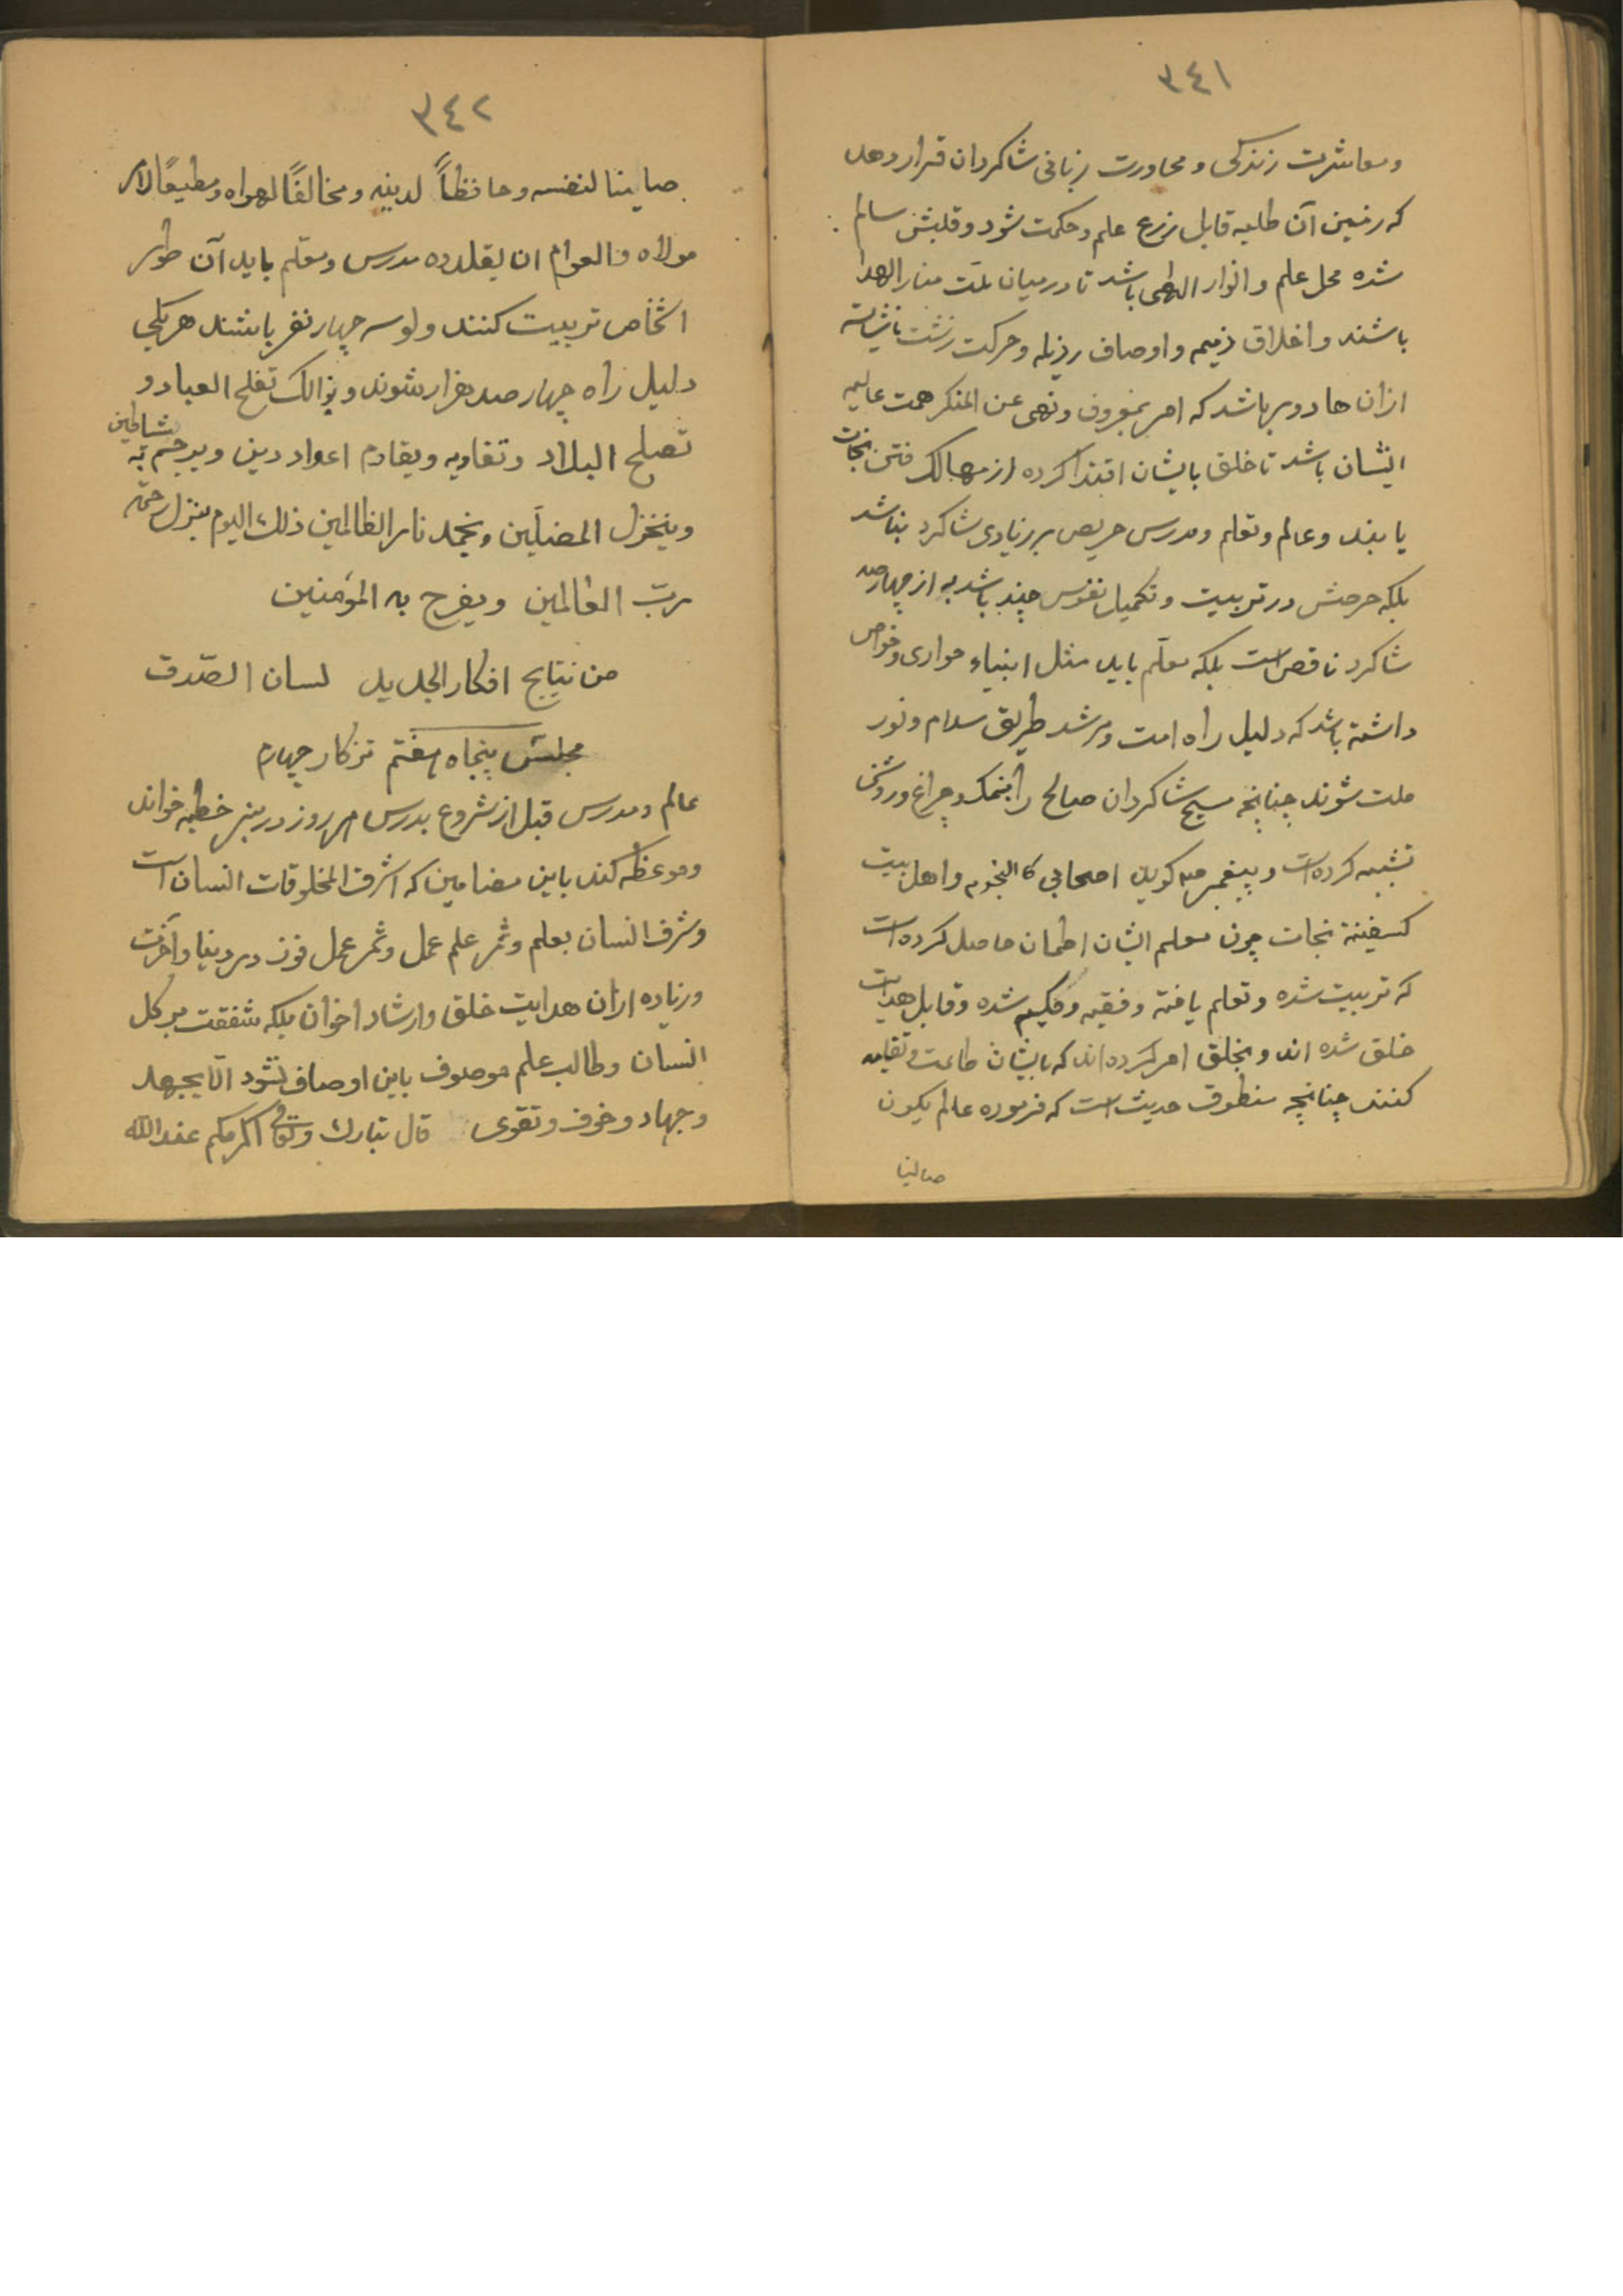 ٣٤١
ومعاشرت زندکی ومحاورت زبانی شاکردان قرار دهد
که زمین آن طلبه قابل زرع علم وحکمت شود وقلبش سالم
شده محل علم وانوار الهی باشد تا درمیان ملت منار الهدا
باشند واخلاق ذمیمه واوصاف رذیله وحرکت زشت ناشایسته
ازان ها دور باشد که امر بمعروف ونهی عن المنکر همت عالیه
ایشان باشد تا خلق بایشان اقتدا کرده از مهالک فتن نجات
یابند وعالم وتعلم ومدرس حریص بر زیادی شاکرد نباشد
بلکه حرصش در تربیت وتکمیل نفوس چند باشد به از چهارصد
شاکرد ناقص است بلکه معلم باید مثل انبیاء حواری وخواص
داشته باشد که دلیل راه امت ومرشد طریق سلام ونور
ملت شوند چنانچه مسیح شاکردان صالح را بنمک وچراغ وروشنی
تشبیه کرده است وپیغمبر ص کوید اصحابی کا النجوم واهل بیت
کسفینة نجات چون معلم ایشان اطمان حاصل کرده است
که تربیت شده وتعلم یافته وفقیه وحکیم شده وقابل هدایت
خلق شده اند وبخلق امر کرده اند که بایشان طاعت وتقلید
کنند چنانچه منطوق حدیث است که فرموده عالم یکون
صائنا
٣٤٢
صاینا لنفسه وحافظاً لدینه ومخالفًا لهواه ومطیعًا لامر
مولاه فالعوام ان یقلدوه مدرس ومعلم باید آن طور
اشخاص تربیت کنند ولو سه چهار نفر باشند هر یکی
دلیل راه چهار صد هزار شوند وبذالک تفلح العباد و
تصلح البلاد وتقاویه ویقادم اعواد دین ویرجم به شیاطین
وینخزل المضلّین ویخمد نار الظالمین ذلک الیوم ینزل رحمة
ربّ العالمین ویفرح به المؤمنین
من نتایج افکار الجدید لسان الصّدق
مجلس پنجاه هفتم تزکار چهارم
عالم ومدرس قبل از شروع بدرس هر روز در منبر خطبه خواند
وموعظه کند باین مضامین که اشرف المخلوقات انسان است
وشرف انسان بعلم وثمر علم عمل وثمر عمل فوز در دنیا وآخرت
وزیاده ازان هدایت خلق وارشاد اخوان بلکه شفقت بر کل
انسان وطالب علم موصوف باین اوصاف نشود الّا بجهد
وجهاد وخوف وتقوی قال تبارك وتعالی اکرمکم عند الله